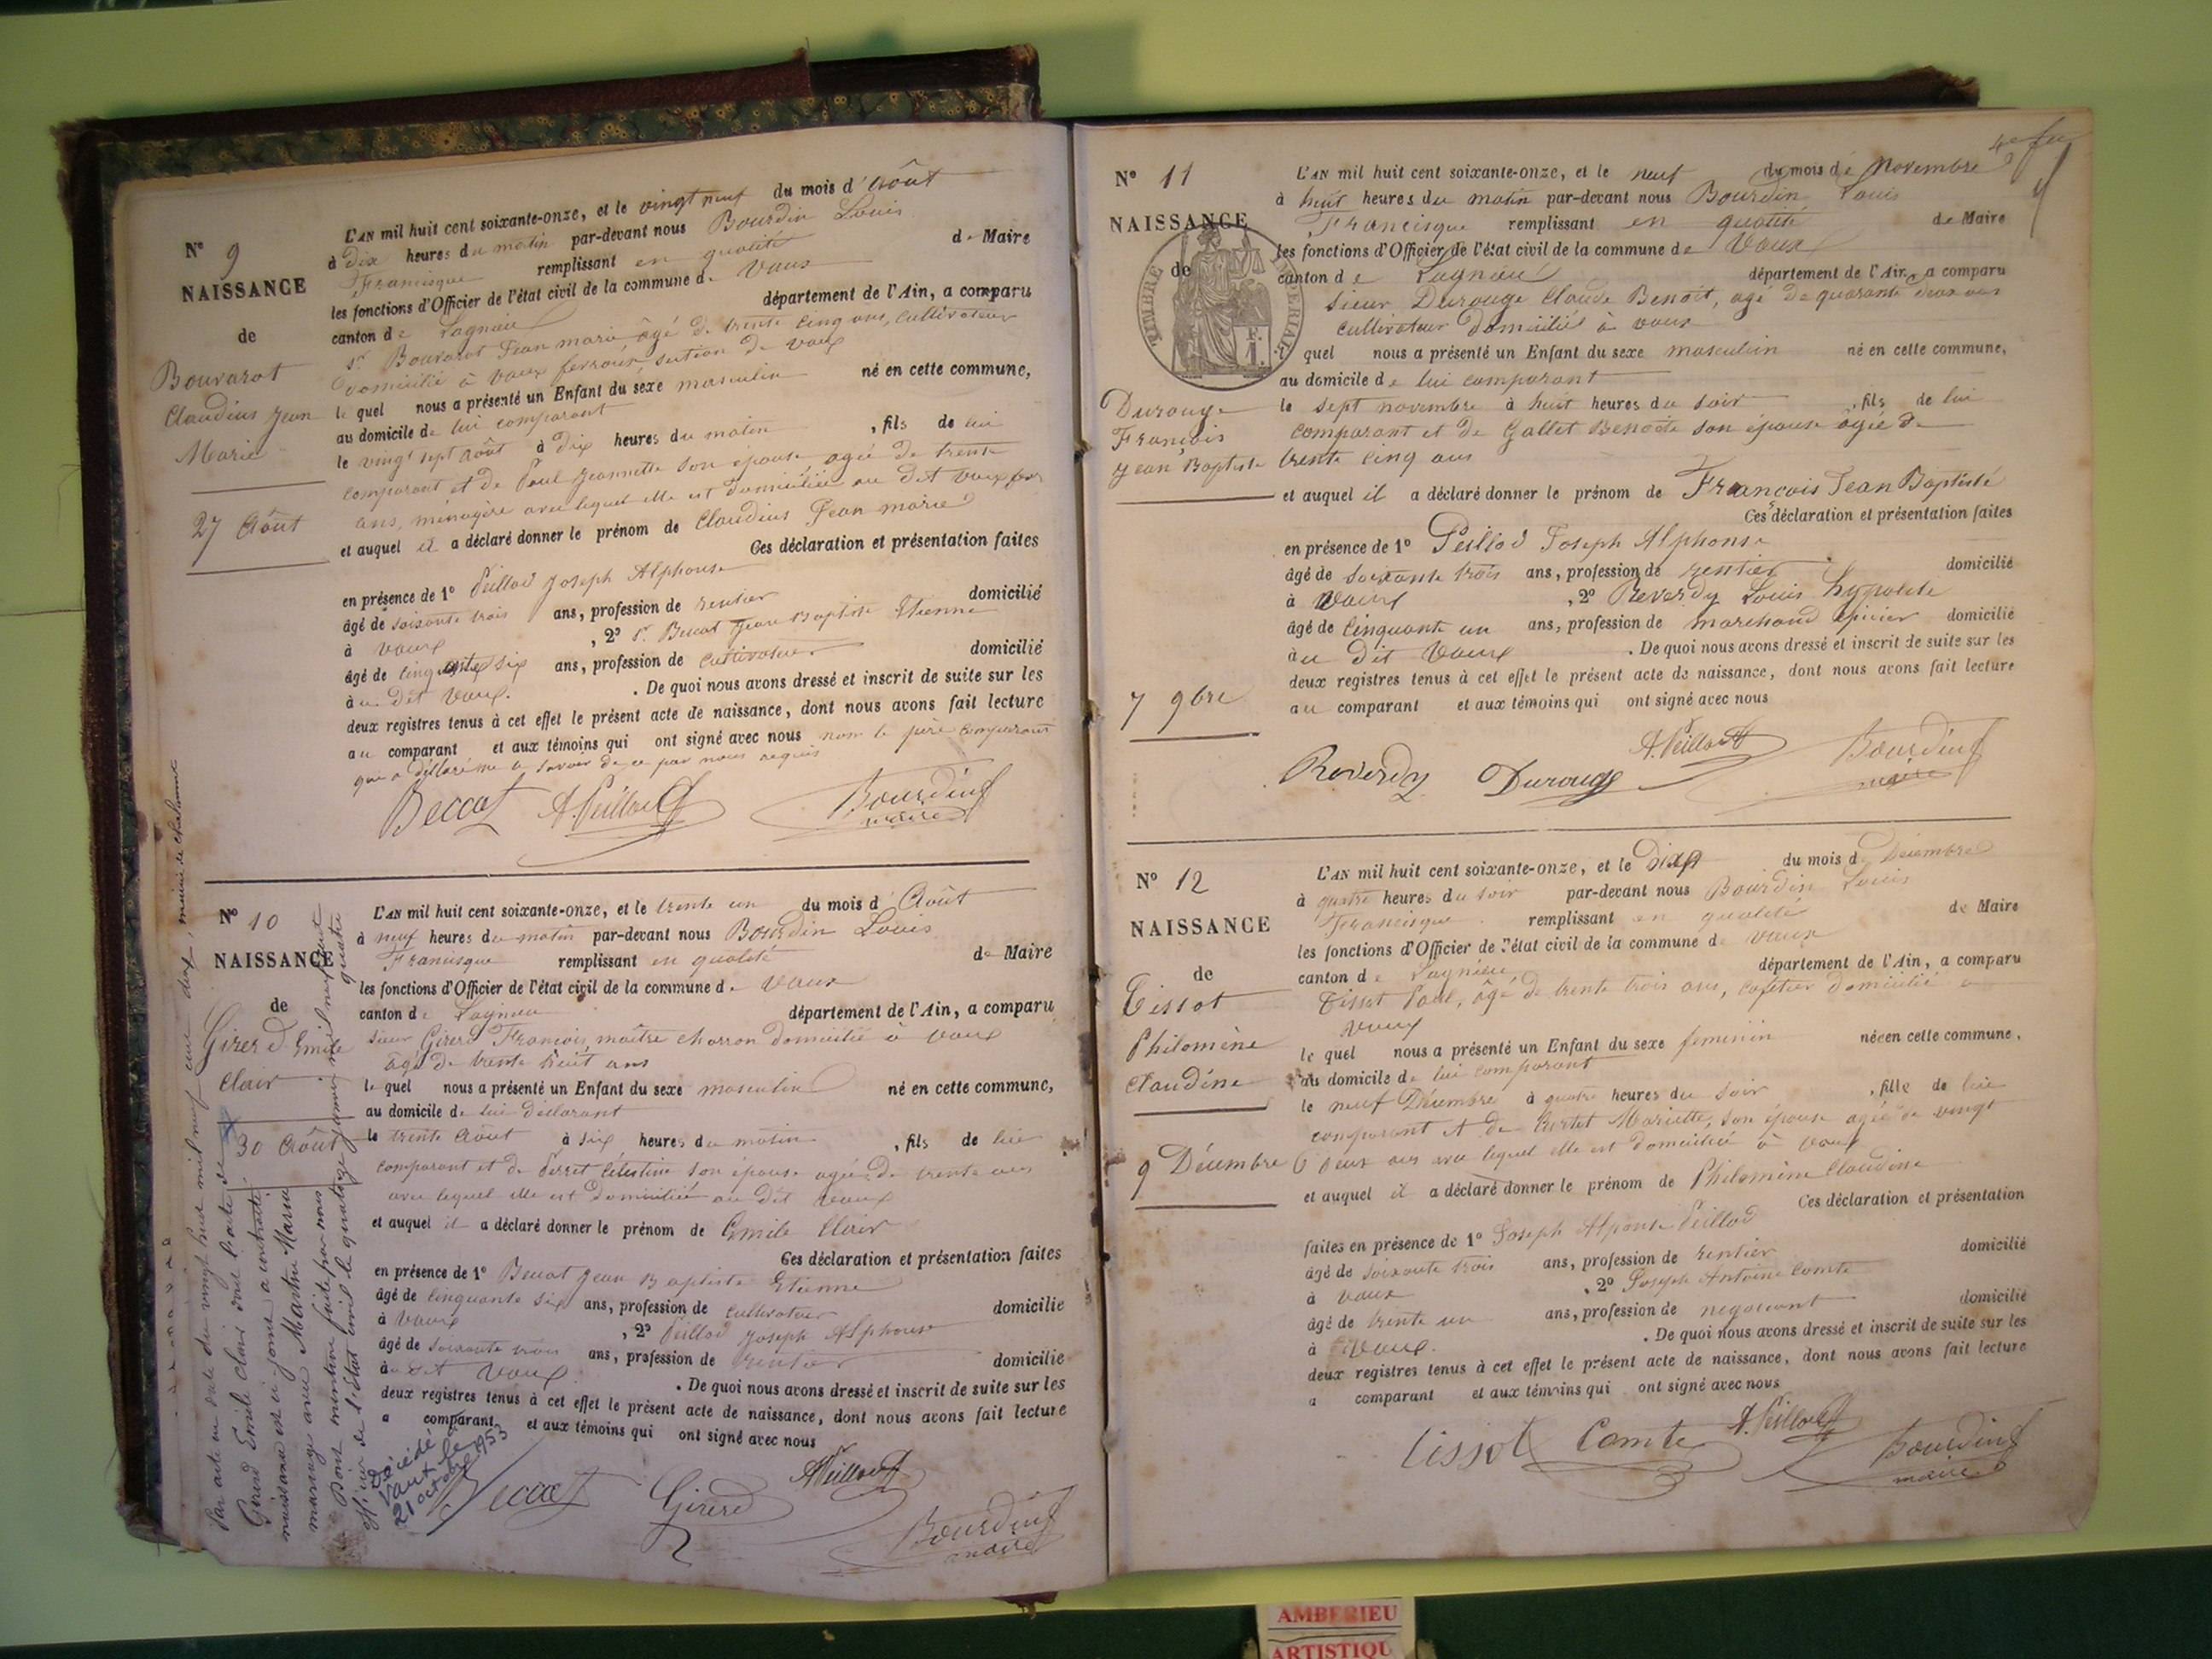 N° 9
NAISSANCE
de
Bouvarot
Claudius Jean
Marie
27 Août
L'AN mil huit cent soixante-onze, et le vingt neuf du mois d'Août
à Dix heures du matin par-devant nous Bourdin Louis
Francisque remplissant en qualité de Maire
les fonctions d'Officier de l'état civil de la commune de Vaux
canton de Lagnieu département de l'Ain, a comparu
sr Bouvarot Jean marie âgé de trente cinq ans, cultivateur
domicilié à vaux section de vaux
le quel nous a présenté un Enfant du sexe masculin né en cette commune,
au domicile de lui comparant
le vingt sept août à dix heures du matin, fils de lui
comparant et de Paul Jeannette son épouse agée de trente
ans, ménagère avec lequel elle est domiciliée au dit vaux
et auquel il a déclaré donner le prénom de Claudius Jean marie
Ces déclaration et présentation faites
en présence de 1° Peillod Joseph Alphonse
âgé de soixante trois ans, profession de rentier domicilié
à vaux, 2° sr Beccat Jean Baptiste Etienne
âgé de cinquante six ans, profession de cultivateur domicilié
à u dit vaux. De quoi nous avons dressé et inscrit de suite sur les
deux registres tenus à cet effet le présent acte de naissance, dont nous avons fait lecture
au comparant et aux témoins qui ont signé avec nous non le père comparant
qui a déclaré ne le savoir de ce par nous requis
Beccat A. Peillod Bourdin
maire
N° 10
NAISSANCE
de
Girerd Emile
Clair
30 Août
L'AN mil huit cent soixante-onze, et le trente un du mois d'Août
à neuf heures du matin par-devant nous Bourdin Louis
Francisque remplissant en qualité de Maire
les fonctions d'Officier de l'état civil de la commune de Vaux
canton de Lagnieu département de l'Ain, a comparu
sieur Girerd François, maître charron domicilié à vaux
âgé de trente huit ans
le quel nous a présenté un Enfant du sexe masculin né en cette commune,
au domicile de lui déclarant
le trente Août à six heures du matin, fils de lui
comparant et de Perret Célestine son épouse agée de trente ans
avec lequel elle est domiciliée au dit vaux
et auquel il a déclaré donner le prénom de Emile Clair
Ces déclaration et présentation faites
en présence de 1° Beccat Jean Baptiste Etienne
âgé de cinquante six ans, profession de cultivateur domicilié
à vaux, 2° Peillod Joseph Alphonse
âgé de soixante trois ans, profession de rentier domicilié
à u dit vaux. De quoi nous avons dressé et inscrit de suite sur les
deux registres tenus à cet effet le présent acte de naissance, dont nous avons fait lecture
a comparant et aux témoins qui ont signé avec nous
Beccat Girerd A Peillod
Bourdin
maire
Par acte en date du vingt huit mai mil neuf cent deux, mairie de Chalamont
Girerd Emile Clair dont l'acte de
naissance est ci joint a contracté
mariage avec Martin Maria
Dont mention faite par nous
officier de l'état civil le quatorze janvier mil neuf cent
quatre
Décédé à
Vaux le
21 octobre 1953
4e feu
N° 11
NAISSANCE
de
TIMBRE IMPERIAL
Durouge
François
Jean Baptiste
7 9bre
L'AN mil huit cent soixante-onze, et le neuf du mois de Novembre
à huit heures du matin par-devant nous Bourdin Louis
Francisque remplissant en qualité de Maire
les fonctions d'Officier de l'état civil de la commune de Vaux
canton de Lagnieu département de l'Ain, a comparu
sieur Durouge Claude Benoit, agé de quarante deux ans
cultivateur domicilié à vaux
le quel nous a présenté un Enfant du sexe masculin né en cette commune,
au domicile de lui comparant
le sept novembre à huit heures du soir, fils de lui
comparant et de Gallet Benoite son épouse âgée de
trente cinq ans
et auquel il a déclaré donner le prénom de François Jean Baptiste
Ces déclaration et présentation faites
en présence de 1° Peillod Joseph Alphonse
âgé de soixante trois ans, profession de rentier domicilié
à vaux, 2° Reverdy Louis hypolite
âgé de cinquante un ans, profession de marchand épicier domicilié
à u dit vaux. De quoi nous avons dressé et inscrit de suite sur les
deux registres tenus à cet effet le présent acte de naissance, dont nous avons fait lecture
au comparant et aux témoins qui ont signé avec nous
Reverdy Durouge A. Peillod Bourdin
maire
N° 12
NAISSANCE
de
Tissot
Philomène
Claudine
9 Décembre
L'AN mil huit cent soixante-onze, et le Dix du mois de Décembre
à quatre heures du soir par-devant nous Bourdin Louis
Francisque remplissant en qualité de Maire
les fonctions d'Officier de l'état civil de la commune de Vaux
canton de Lagnieu département de l'Ain, a comparu
Tissot Paul, âgé de trente trois ans, cafetier domicilié à
vaux
le quel nous a présenté un Enfant du sexe feminin née en cette commune,
au domicile de lui comparant
le neuf Décembre à quatre heures du soir, fille de lui
comparant et de Mariette, son épouse agée de vingt
deux ans avec lequel elle est domiciliée à vaux
et auquel il a déclaré donner le prénom de Philomène Claudine
Ces déclaration et présentation
faites en présence de 1° Joseph Alponse Peillod
âgé de soixante trois ans, profession de rentier domicilié
à vaux, 2° Joseph Antoine Comte
âgé de trente un ans, profession de négociant domicilié
à Vaux. De quoi nous avons dressé et inscrit de suite sur les
deux registres tenus à cet effet le présent acte de naissance, dont nous avons fait lecture
a comparant et aux témoins qui ont signé avec nous
Tissot Comte A. Peillod Bourdin
maire
AMBERIEU
ARTISTIQU